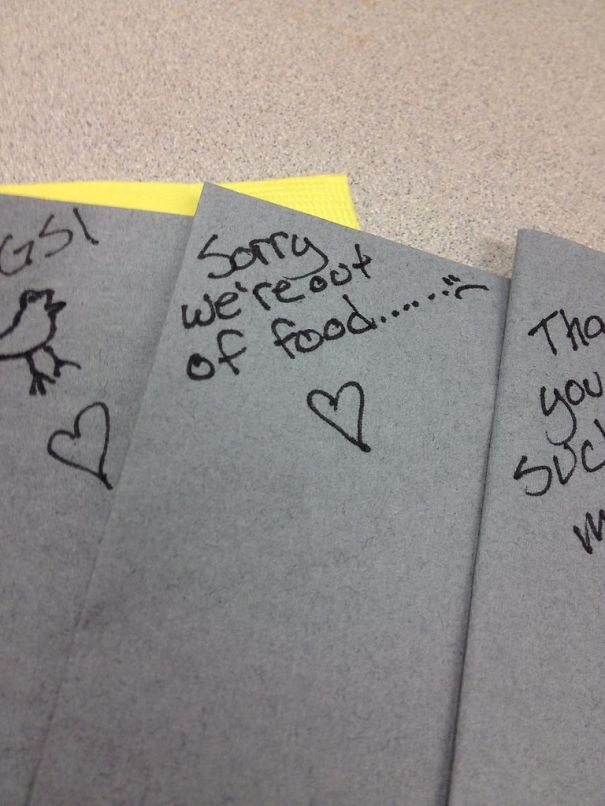 GSI
Sorry
we're out
of food......:(
Tha
you
suc
m